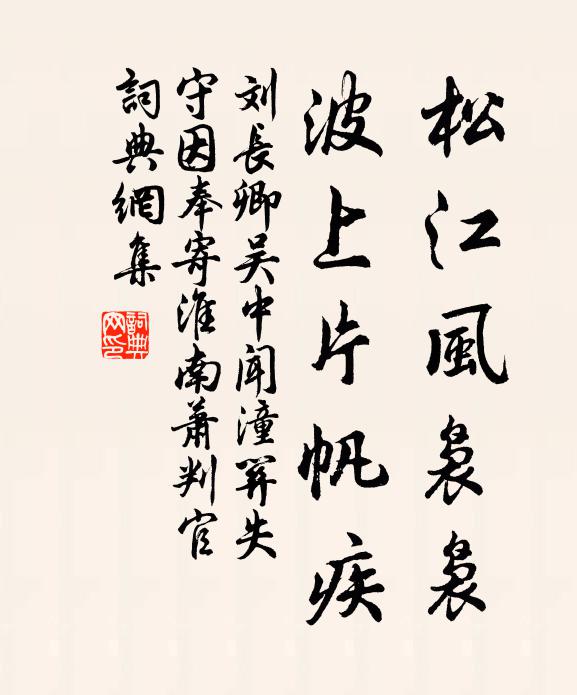 松江風裊裊
波上片帆疾
刘長卿吴中闻潼關失
守因奉寄淮南蕭判官
詞典網集
詞典網印